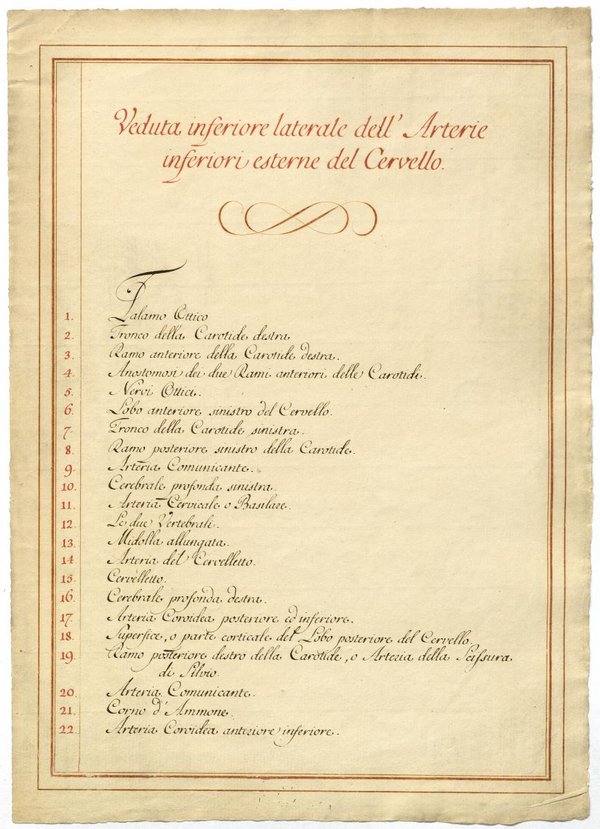 Veduta inferiore laterale dell' Arterie
inferiori esterne del Cervello.
1. Talamo Ottico
2. Tronco della Carotide destra
3. Ramo anteriore della Carotide destra.
4. Anostomosi dei due Rami anteriori delle Carotidi.
5. Nervi Ottici.
6. Lobo anteriore sinistro del Cervello.
7. Tronco della Carotide sinistra.
8. Ramo posteriore sinistro della Carotide.
9. Arteria Comunicante.
10. Cerebrale profonda sinistra.
11. Arteria Cervicale o Basilare.
12. Le due Vertebrali.
13. Midolla allungata.
14. Arteria del Cervelletto.
15. Cervelletto.
16. Cerebrale profonda destra.
17. Arteria Coroidea posteriore ed inferiore.
18. Superfice, o parte corticale del Lobo posteriore del Cervello.
19. Ramo posteriore destro della Carotide, o Arteria della Scissura
di Silvio
20. Arteria Comunicante.
21. Corno d'Ammone.
22. Arteria Coroidea anteriore inferiore.